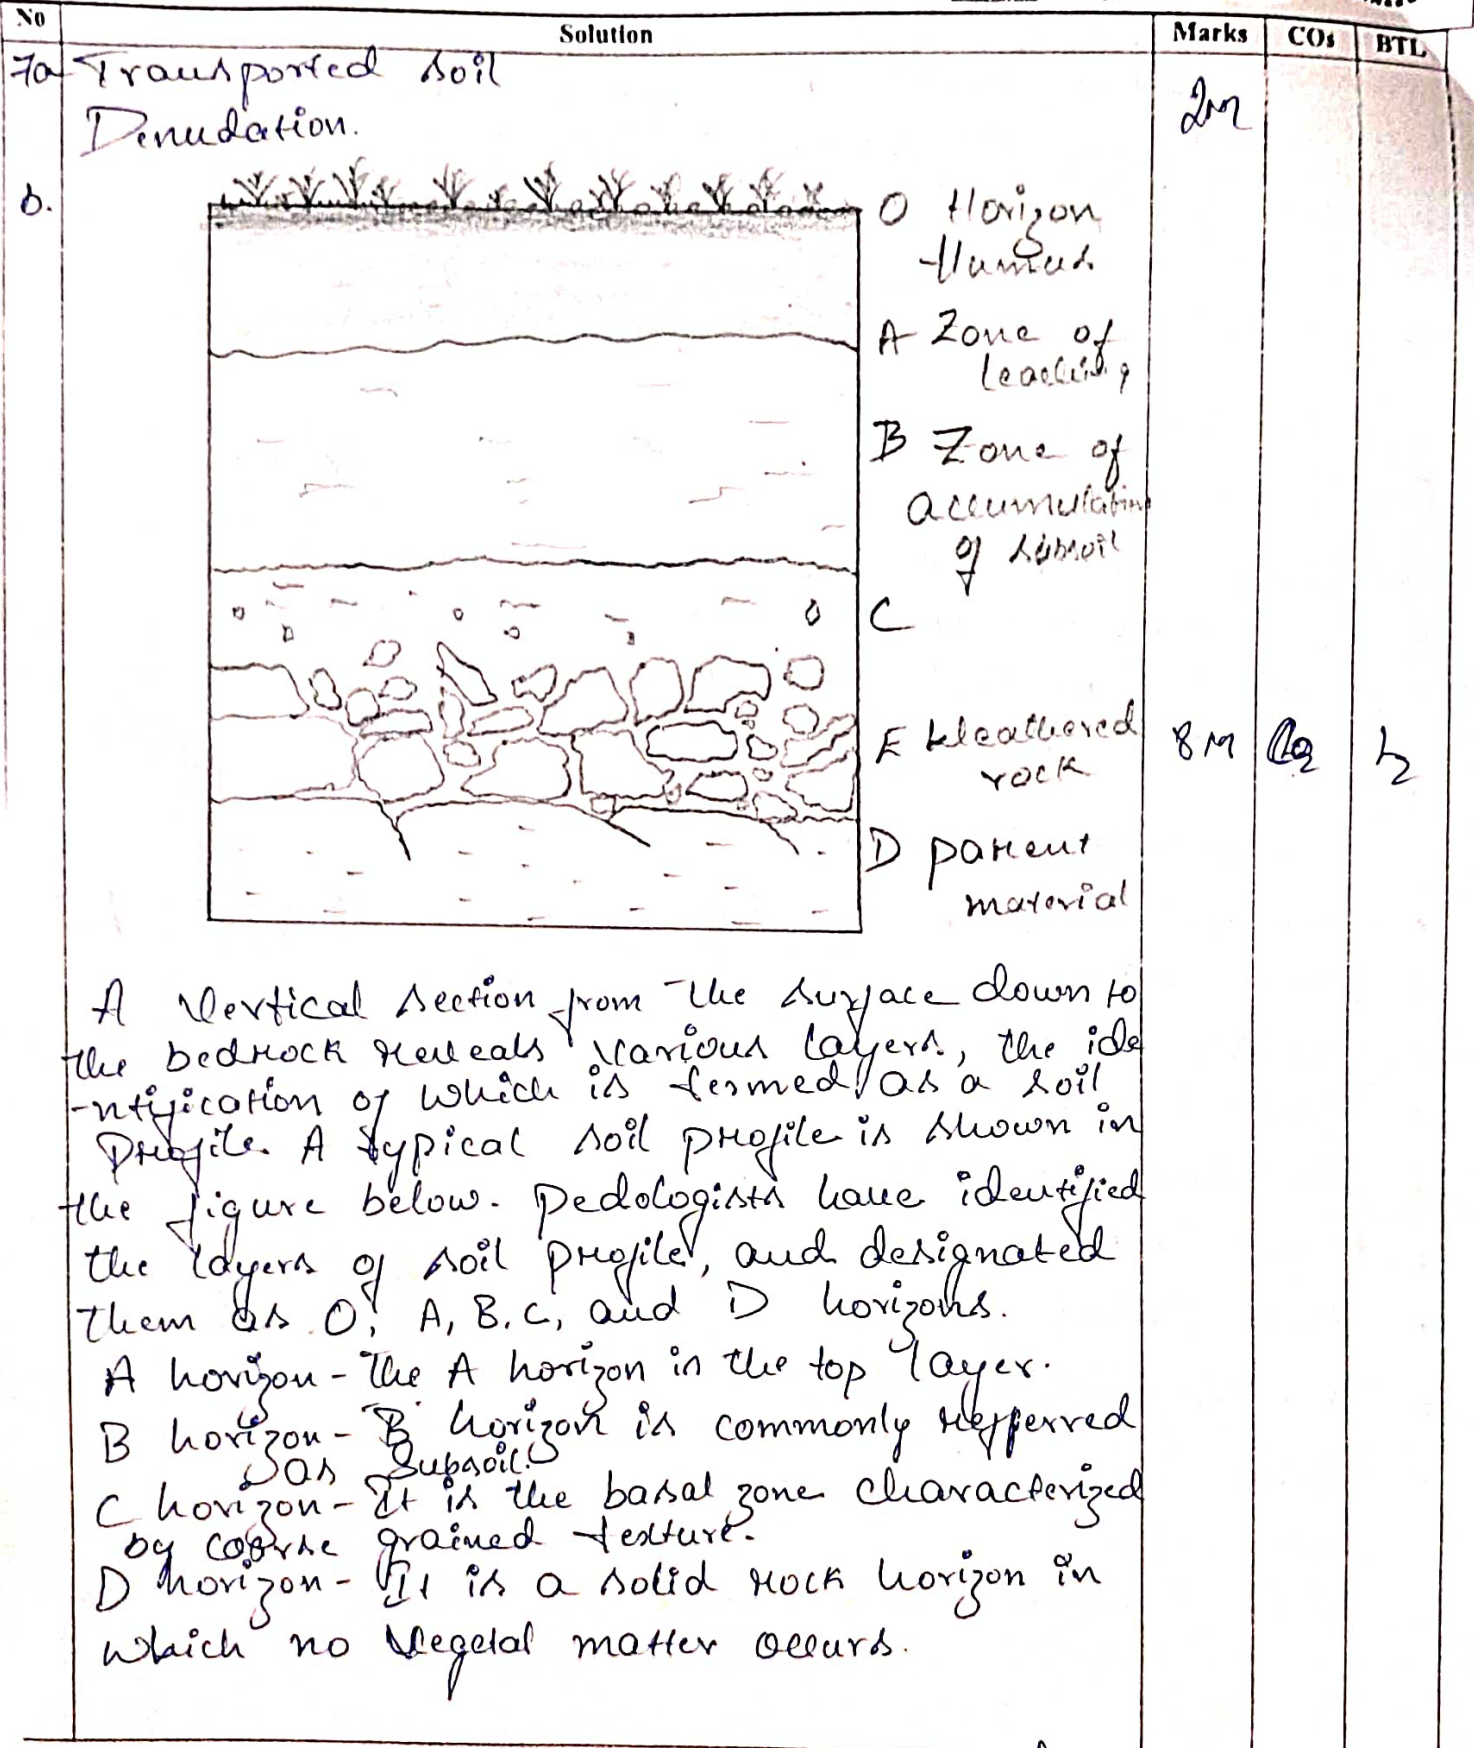 No Solution Marks COs BTL
7a Transported soil
Denudation.
2m
b.
O Horizon
Humus
A Zone of
leaching
B Zone of
accumulation
of subsoil
C
E Weathered
rock
8M Co2 L2
D parent
material
A Vertical section from the surface down to
the bedrock reveals various layers, the ide
-ntification of which is termed as a soil
profile. A typical soil profile is shown in
the figure below. Pedologists have identified
the layers of soil profile, and designated
them as O, A, B, C, and D horizons.
A horizon - The A horizon is the top layer.
B horizon - B horizon is commonly refferred
as Subsoil.
C horizon - It is the basal zone characterized
by coarse grained texture.
D horizon - It is a solid rock horizon in
which no Vegetal matter occurs.